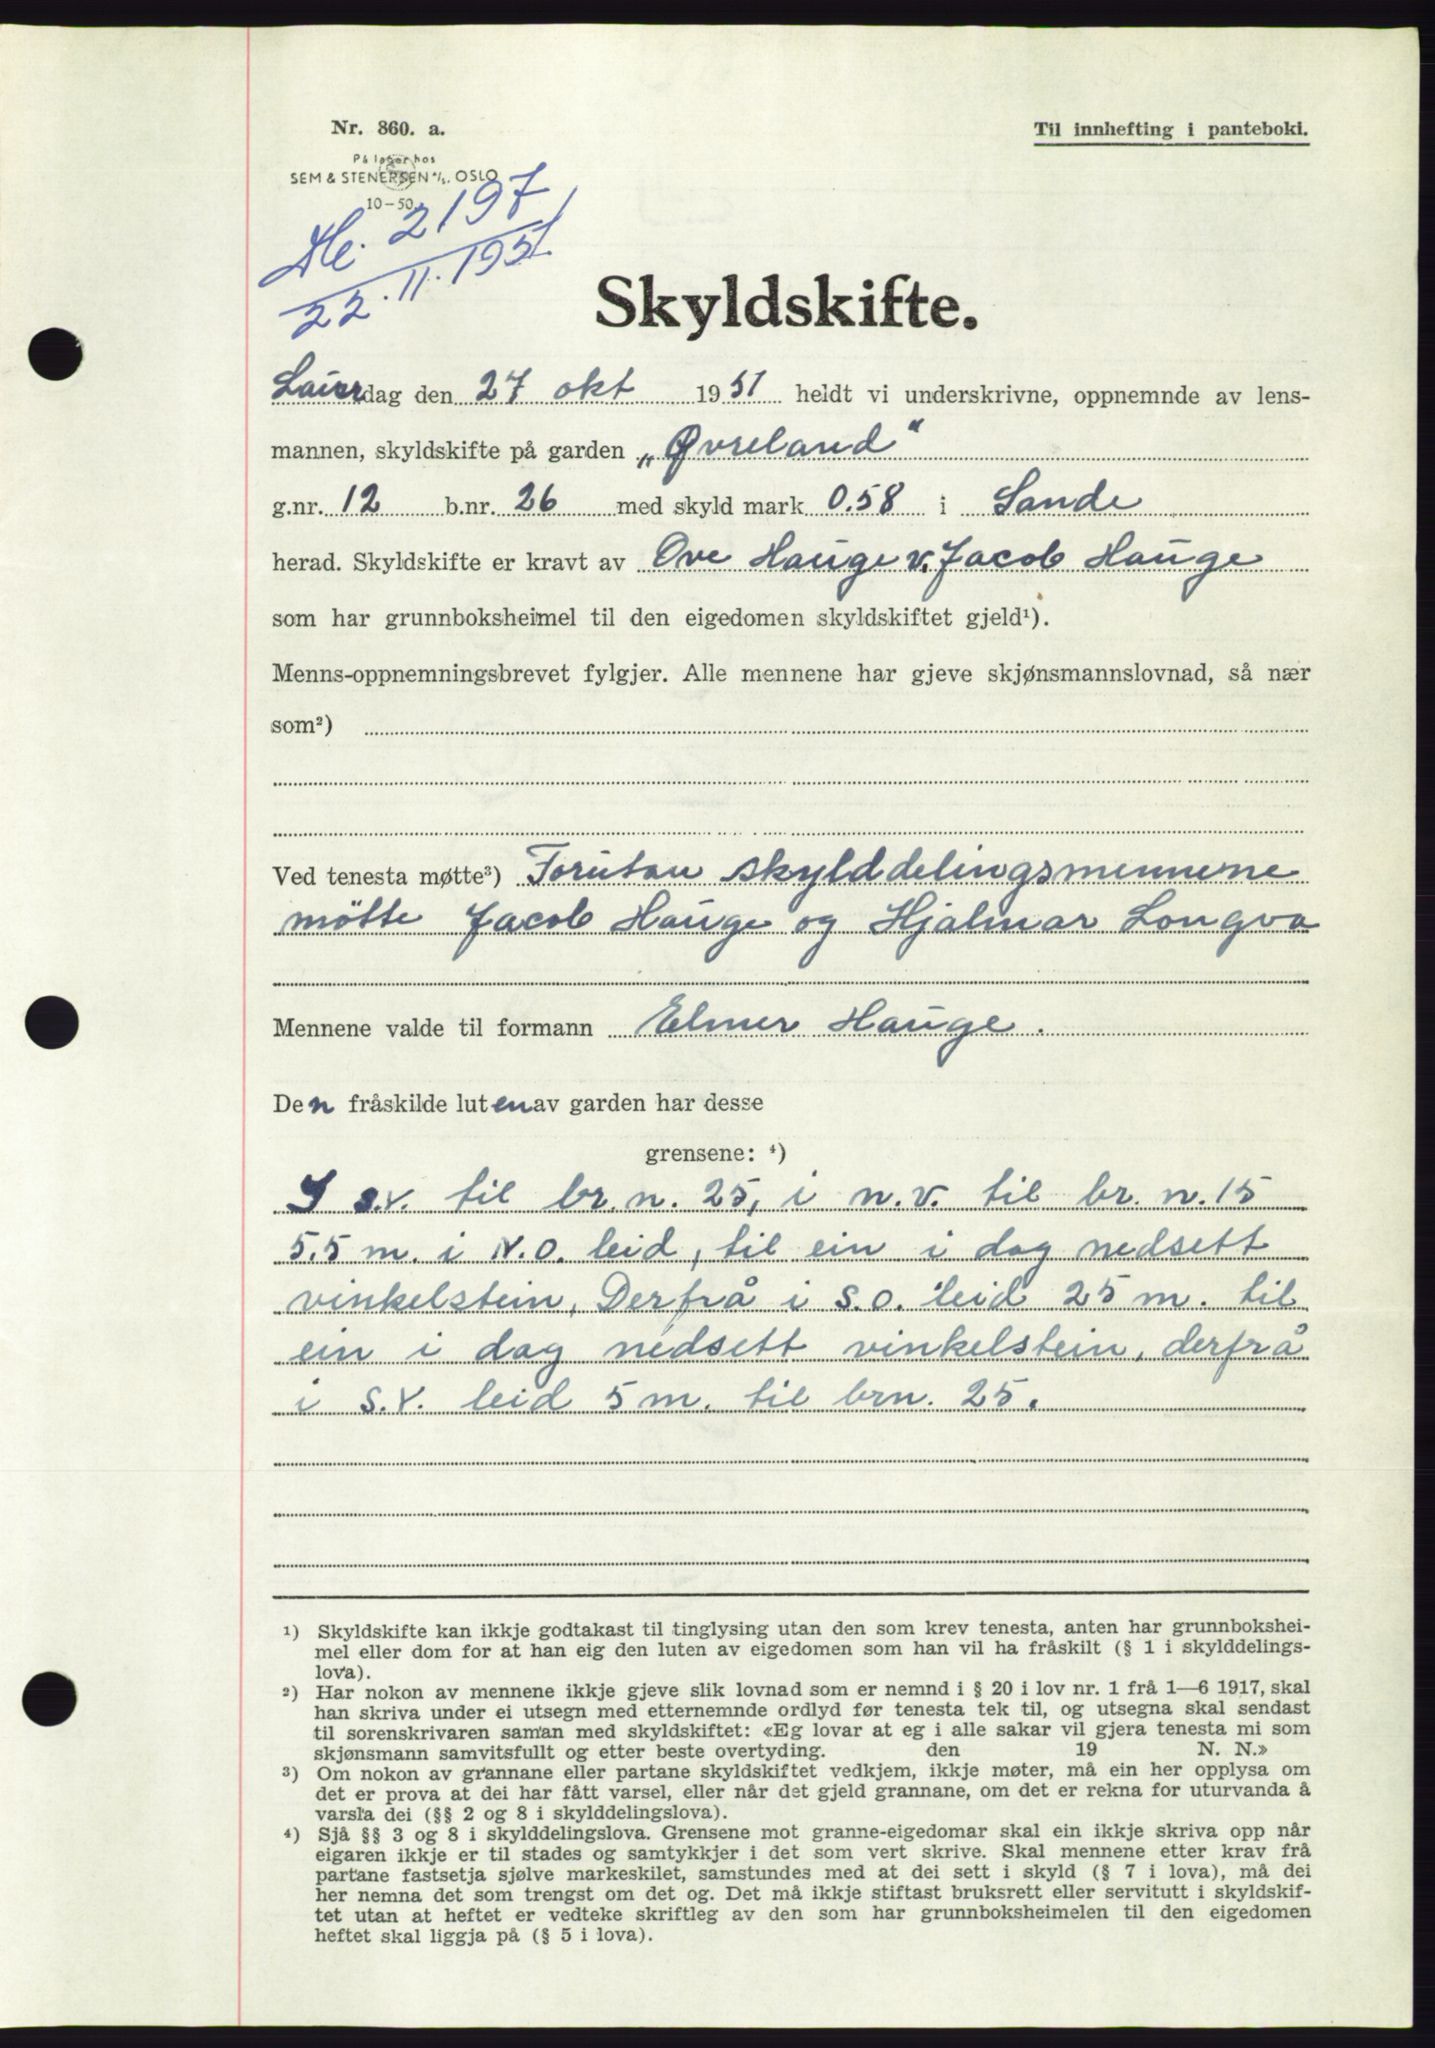 Nr. 860. a.
Til innhefting i panteboki.
På lager hos
SEM & STENERSEN A/S. OSLO
10-50.
2197
22.11.1951
Skyldskifte.
Lauerdag den 27 okt 1951 heldt vi underskrivne, oppnemnde av lens-
mannen, skyldskifte på garden „Øvreland“
g.nr. 12 b.nr. 26 med skyld mark 0.58 i Sande
herad. Skyldskifte er kravt av Ove Hauge v. Jacob Hauge
som har grunnboksheimel til den eigedomen skyldskiftet gjeld¹).
Menns-oppnemningsbrevet fylgjer. Alle mennene har gjeve skjønsmannslovnad, så nær
som²)
Ved tenesta møtte³) Forutan skylddelingsmennene
møtte Jacob Hauge og Hjalmar Longva
Mennene valde til formann Elmer Hauge.
Den fråskilde luten av garden har desse
grensene: ⁴)
I s.v. til br. n. 25, i n.v. til br. n. 15
5.5 m. i N.O. leid, til ein i dag nedsett
vinkelstein, Derfrå i s.o. leid 25 m. til
ein i dag nedsett vinkelstein, derfrå
i S.V. leid 5 m. til brn. 25.
¹) Skyldskifte kan ikkje godtakast til tinglysing utan den som krev tenesta, anten har grunnbokshei-
mel eller dom for at han eig den luten av eigedomen som han vil ha fråskilt (§ 1 i skylddelings-
lova).
²) Har nokon av mennene ikkje gjeve slik lovnad som er nemnd i § 20 i lov nr. 1 frå 1—6 1917, skal
han skriva under ei utsegn med etternemnde ordlyd før tenesta tek til, og utsegna skal sendast
til sorenskrivaren saman med skyldskiftet: «Eg lovar at eg i alle sakar vil gjera tenesta mi som
skjønsmann samvitsfullt og etter beste overtyding. den 19 N. N.»
³) Om nokon av grannane eller partane skyldskiftet vedkjem, ikkje møter, må ein her opplysa om
det er prova at dei har fått varsel, eller når det gjeld grannane, om det er rekna for uturvanda å
varsla dei (§§ 2 og 8 i skylddelingslova).
⁴) Sjå §§ 3 og 8 i skylddelingslova. Grensene mot granne-eigedomar skal ein ikkje skriva opp når
eigaren ikkje er til stades og samtykkjer i det som vert skrive. Skal mennene etter krav frå
partane fastsetja sjølve markeskilet, samstundes med at dei sett i skyld (§ 7 i lova), må dei
her nemna det som trengst om det og. Det må ikkje stiftast bruksrett eller servitutt i skyldskif-
tet utan at heftet er vedteke skriftleg av den som har grunnboksheimelen til den eigedomen
heftet skal liggja på (§ 5 i lova).